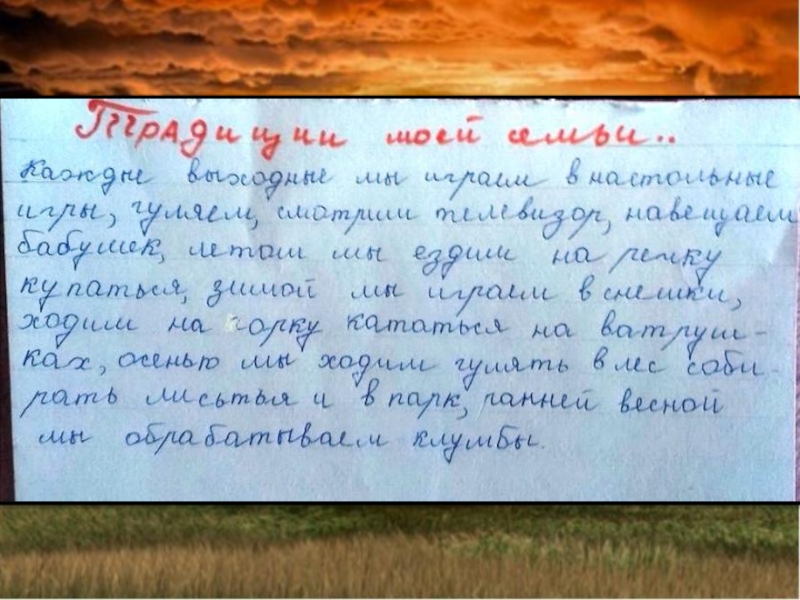 Традиции моей семьи..
Каждые выходные мы играем в настольные
игры, гуляем, смотрим телевизор, навещаем
бабушек, летом мы ездим на речку
купаться, зимой мы играем в снешки,
ходим на горку кататься на ватруш-
ках, осенью мы ходим гулять в лес соби-
рать лисьтья и в парк, ранней весной
мы обрабатываем клумбы.